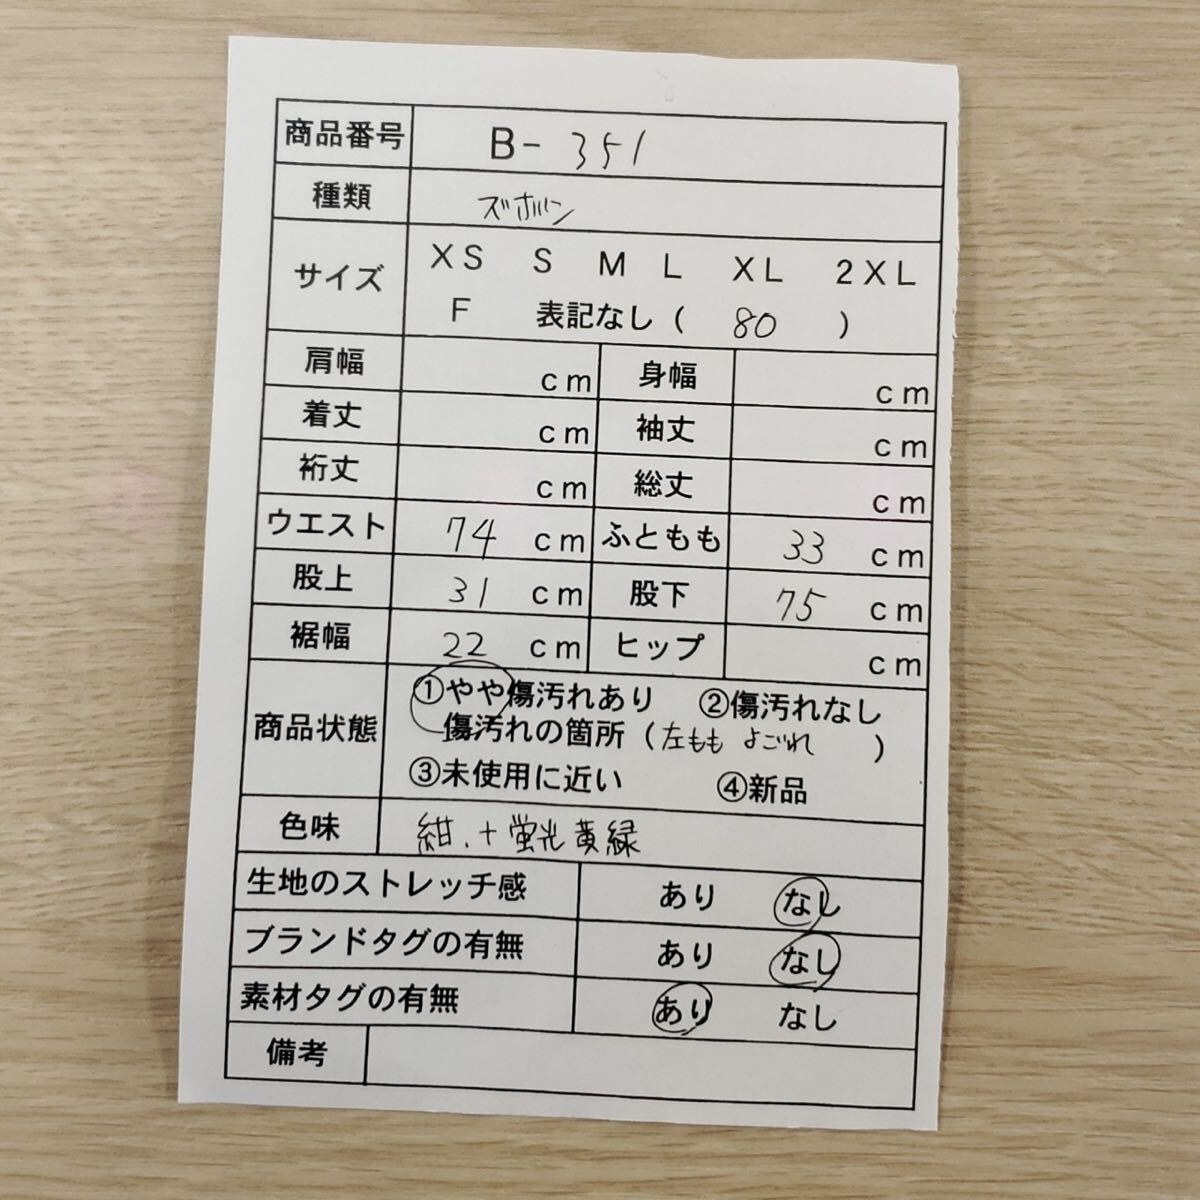 商品番号 B- 351
種類 ズボン
サイズ XS S M L XL 2XL
F 表記なし ( 80 )
肩幅 cm 身幅 cm
着丈 cm 袖丈 cm
裄丈 cm 総丈 cm
ウエスト 74 cm ふともも 33 cm
股上 31 cm 股下 75 cm
裾幅 22 cm ヒップ cm
商品状態 ①やや傷汚れあり ②傷汚れなし
傷汚れの箇所 (左もも よごれ )
③未使用に近い ④新品
色味 紺.+蛍光黄緑
生地のストレッチ感 あり なし
ブランドタグの有無 あり なし
素材タグの有無 あり なし
備考